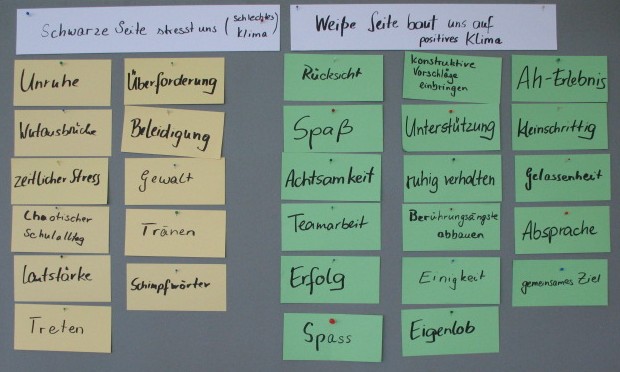 Schwarze Seite stresst uns (schlechtes
Klima)
Weiße Seite baut uns auf
positives Klima
Unruhe
Wutausbrüche
zeitlicher Stress
Chaotischer
Schulalltag
Lautstärke
Treten
Überforderung
Beleidigung
Gewalt
Tränen
Schimpfwörter
Rücksicht
Spaß
Achtsamkeit
Teamarbeit
Erfolg
Spass
konstruktive
Vorschläge
einbringen
Unterstützung
ruhig verhalten
Berührungsängste
abbauen
Einigkeit
Eigenlob
Ah-Erlebnis
kleinschrittig
Gelassenheit
Absprache
gemeinsames Ziel